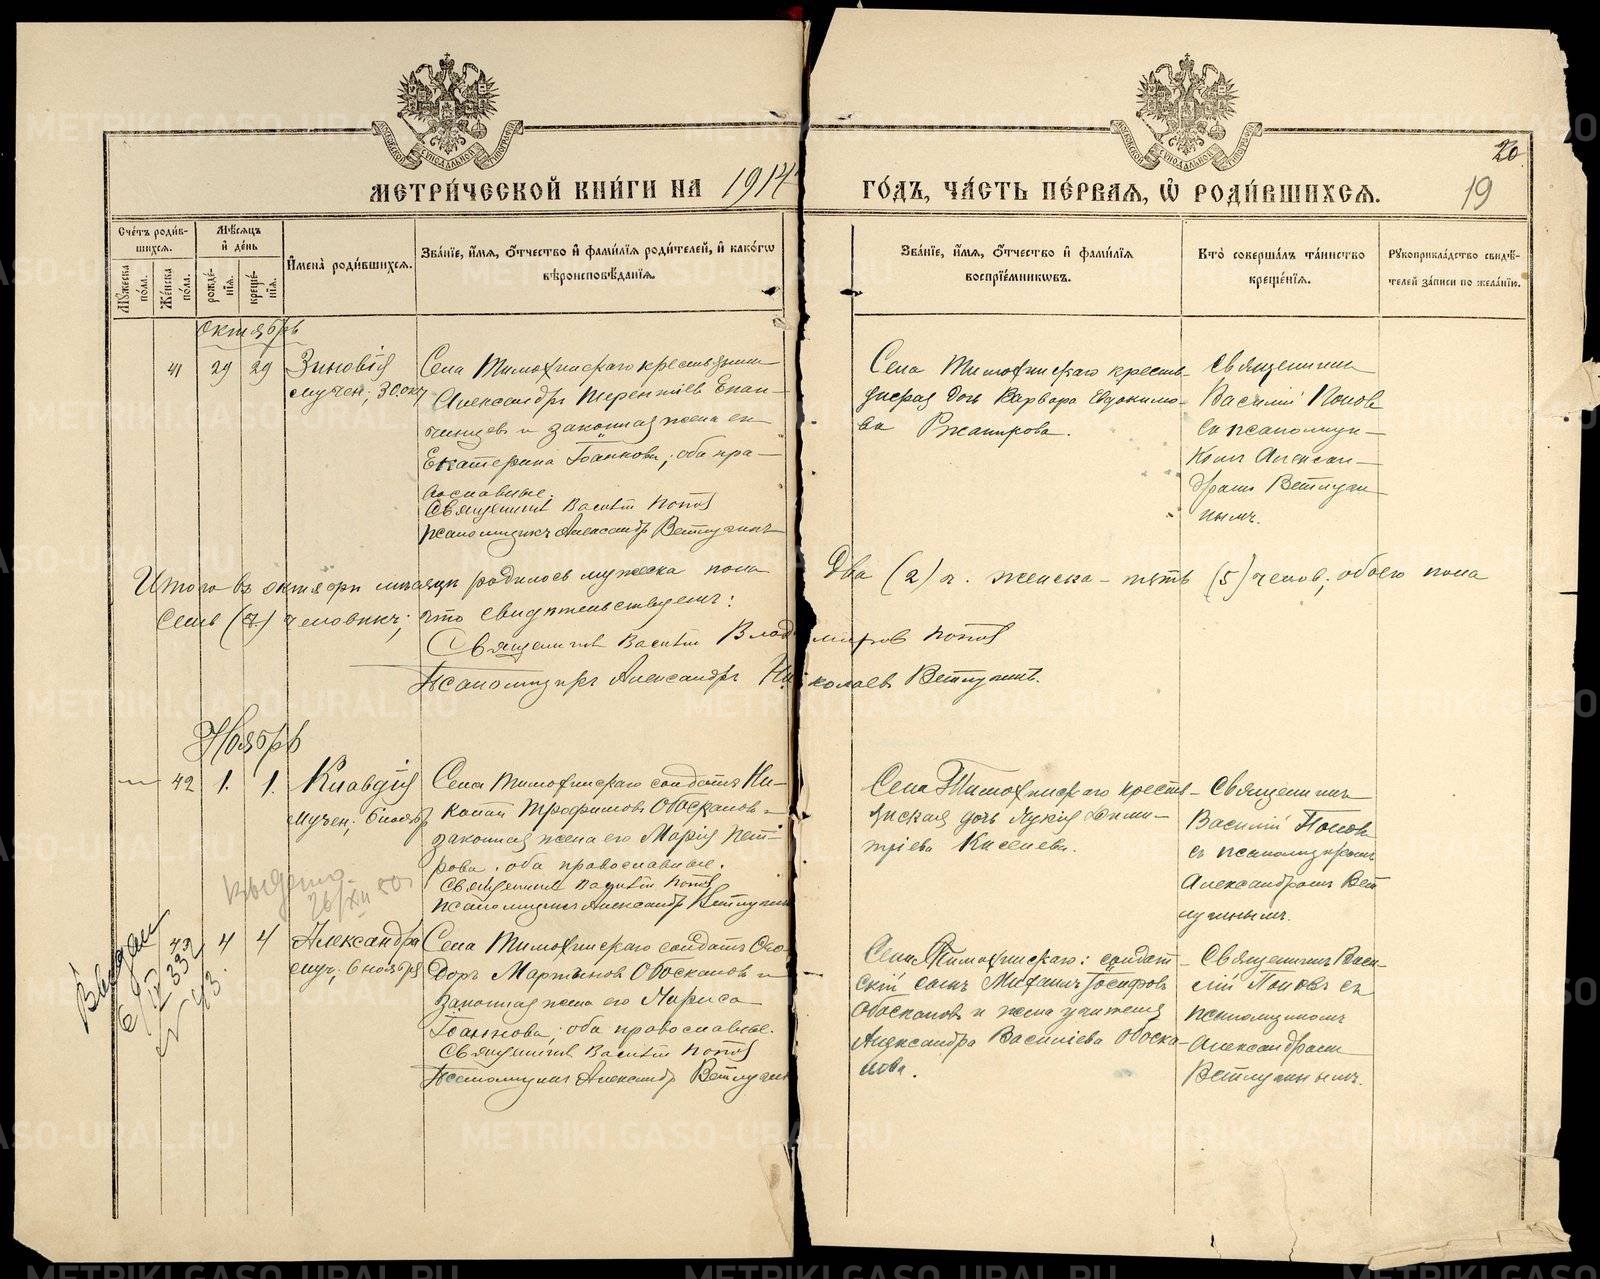 МЕТРИ́ЧЕСКОЙ КНИ́ГИ НА 1914 ГО́ДЪ, ЧА́СТЬ ПЕ́РВАЯ, Ѡ҆ РОДИ́ВШИХСЯ.
20
19
Сче́тъ роди́в-
шихся.
Му́жеска по́ла.
Же́нска по́ла.
Мѣ́сяцъ и҆ де́нь
рожде́-
нїя.
креще́-
нїя.
И҆мена̀ роди́вшихся.
Зва́нїе, и҆́мя, о҆́тчество и҆ фами́лїя роди́телей, и҆ како́гѡ
вѣроисповѣ́данїя.
Зва́нїе, и҆́мя, о҆́тчество и҆ фами́лїя
воспрїе́мникѡвъ.
Кто̀ соверша́лъ та́инство
креще́нїя.
Рукоприкла́дство свидѣ́-
телей за́писи по жела́нїю.
Октябрь
41 29 29 Зиновія
мучен; 30 окт
Села Тимохинскаго крестьянинъ
Александръ Терентіевъ Епан-
чинцевъ и законная жена его
Екатерина Іоаннова; оба пра-
вославные.
Священникъ Василій Поповъ
Псаломщикъ Александръ Ветлугинъ
Села Тимохинскаго крестья-
нская дочь Варвара Евдокимо-
ва Ржанникова.
Священникъ
Василій Поповъ
съ псаломщи-
комъ Алексан-
дромъ Ветлуги-
нымъ.
Итого въ октябрѣ мѣсяцѣ родилось мужеска пола Два (2) ч. женска - пять (5) челов; обоего пола
Семь (7) человѣкъ; что свидѣтельствуемъ:
Священникъ Василій Владимировъ Поповъ
Псаломщикъ Александръ Николаевъ Ветлугинъ.
Ноябрь
42 1. 1. Клавдія
мучен; 6 ноября
Села Тимохинскаго солдатъ Ни-
колай Трофимовъ Обоскаловъ и
законная жена его Марія Пет-
рова. оба православные.
Священникъ Василій Поповъ
Псаломщикъ Александръ Ветлугинъ
Села Тимохинскаго кресть-
янская дочь Лукія Дими-
тріева Киселева.
Священникъ
Василій Поповъ
съ псаломщикомъ
Александромъ Вет
лугинымъ.
Выдано
26/XII 50 г
Выдан
43 4 4 Александра
муч; 6 ноября
Села Тимохинскаго солдатъ Ѳео-
доръ Мартыновъ Обоскаловъ и
законная жена его Мариса
Іоаннова; оба православные.
Священникъ Василій Поповъ
Псаломщикъ Александръ Ветлугинъ
Села Тимохинскаго: солдат-
скій сынъ Михаилъ Іосифовъ
Обоскаловъ и жена учителя
Александра Василіева Обоска-
лова.
Священникъ Васи-
лій Поповъ съ
псаломщикомъ
Александромъ
Ветлугинымъ.
METRIKI.GASO-URAL.RU